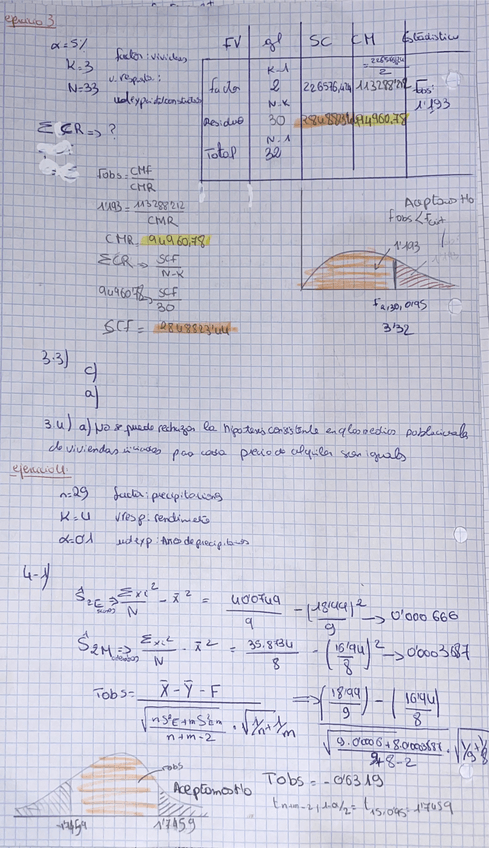 ejercicio 3
α=5%
K=3
N=33
factor: viviendas
v. respuesta:
FV gl SC CM Estadístico
K-1
factor 2 226576,424 113288,212 Fobs:
1'193
N-K
Residuo 30 2848823,44 94960,78
N-1
Total 32
ECR => ?
Fobs = CMF / CMR
1'193 = 113288212 / CMR
CMR = 94960,78
ECR => SCF / N-K
94960,78 = SCF / 30
SCF = 2848823,44
Aceptamos Ho
Fobs < Fcrit
1'193
F2,30,0'95
3'32
3.3)
c)
a)
3.4) a) No se puede rechazar la hipotesis consistente en q las medias poblacionales
de viviendas para cada precio de alquiler sean iguales
ejercicio 4.
n=29 factor: precipitaciones
K=4 v resp: rendimiento
α=0'1 ud exp: Años de precipitaciones
4-1)
Ŝ2E => Σxi² / N - x̄² = 40'0749 / 9 - (18'99 / 9)² -> 0'000666
Ŝ2M => Σxi² / N - x̄² = 35.8734 / 8 - (16'94 / 8)² -> 0'0003687
Tobs = X̄ - Ȳ - F / √(nS²E + mS²m / n+m-2) · √(1/n + 1/m) => (18'99 / 9) - (16'94 / 8) / √(9·0'0006 + 8·0'0003687 / 9+8-2) · √(1/9 + 1/8)
Tobs = -0'6319
tn+m-2, 1-α/2 = t15,0'95 = 1'7459
Tobs
Aceptamos Ho
-1'7459 1'7459